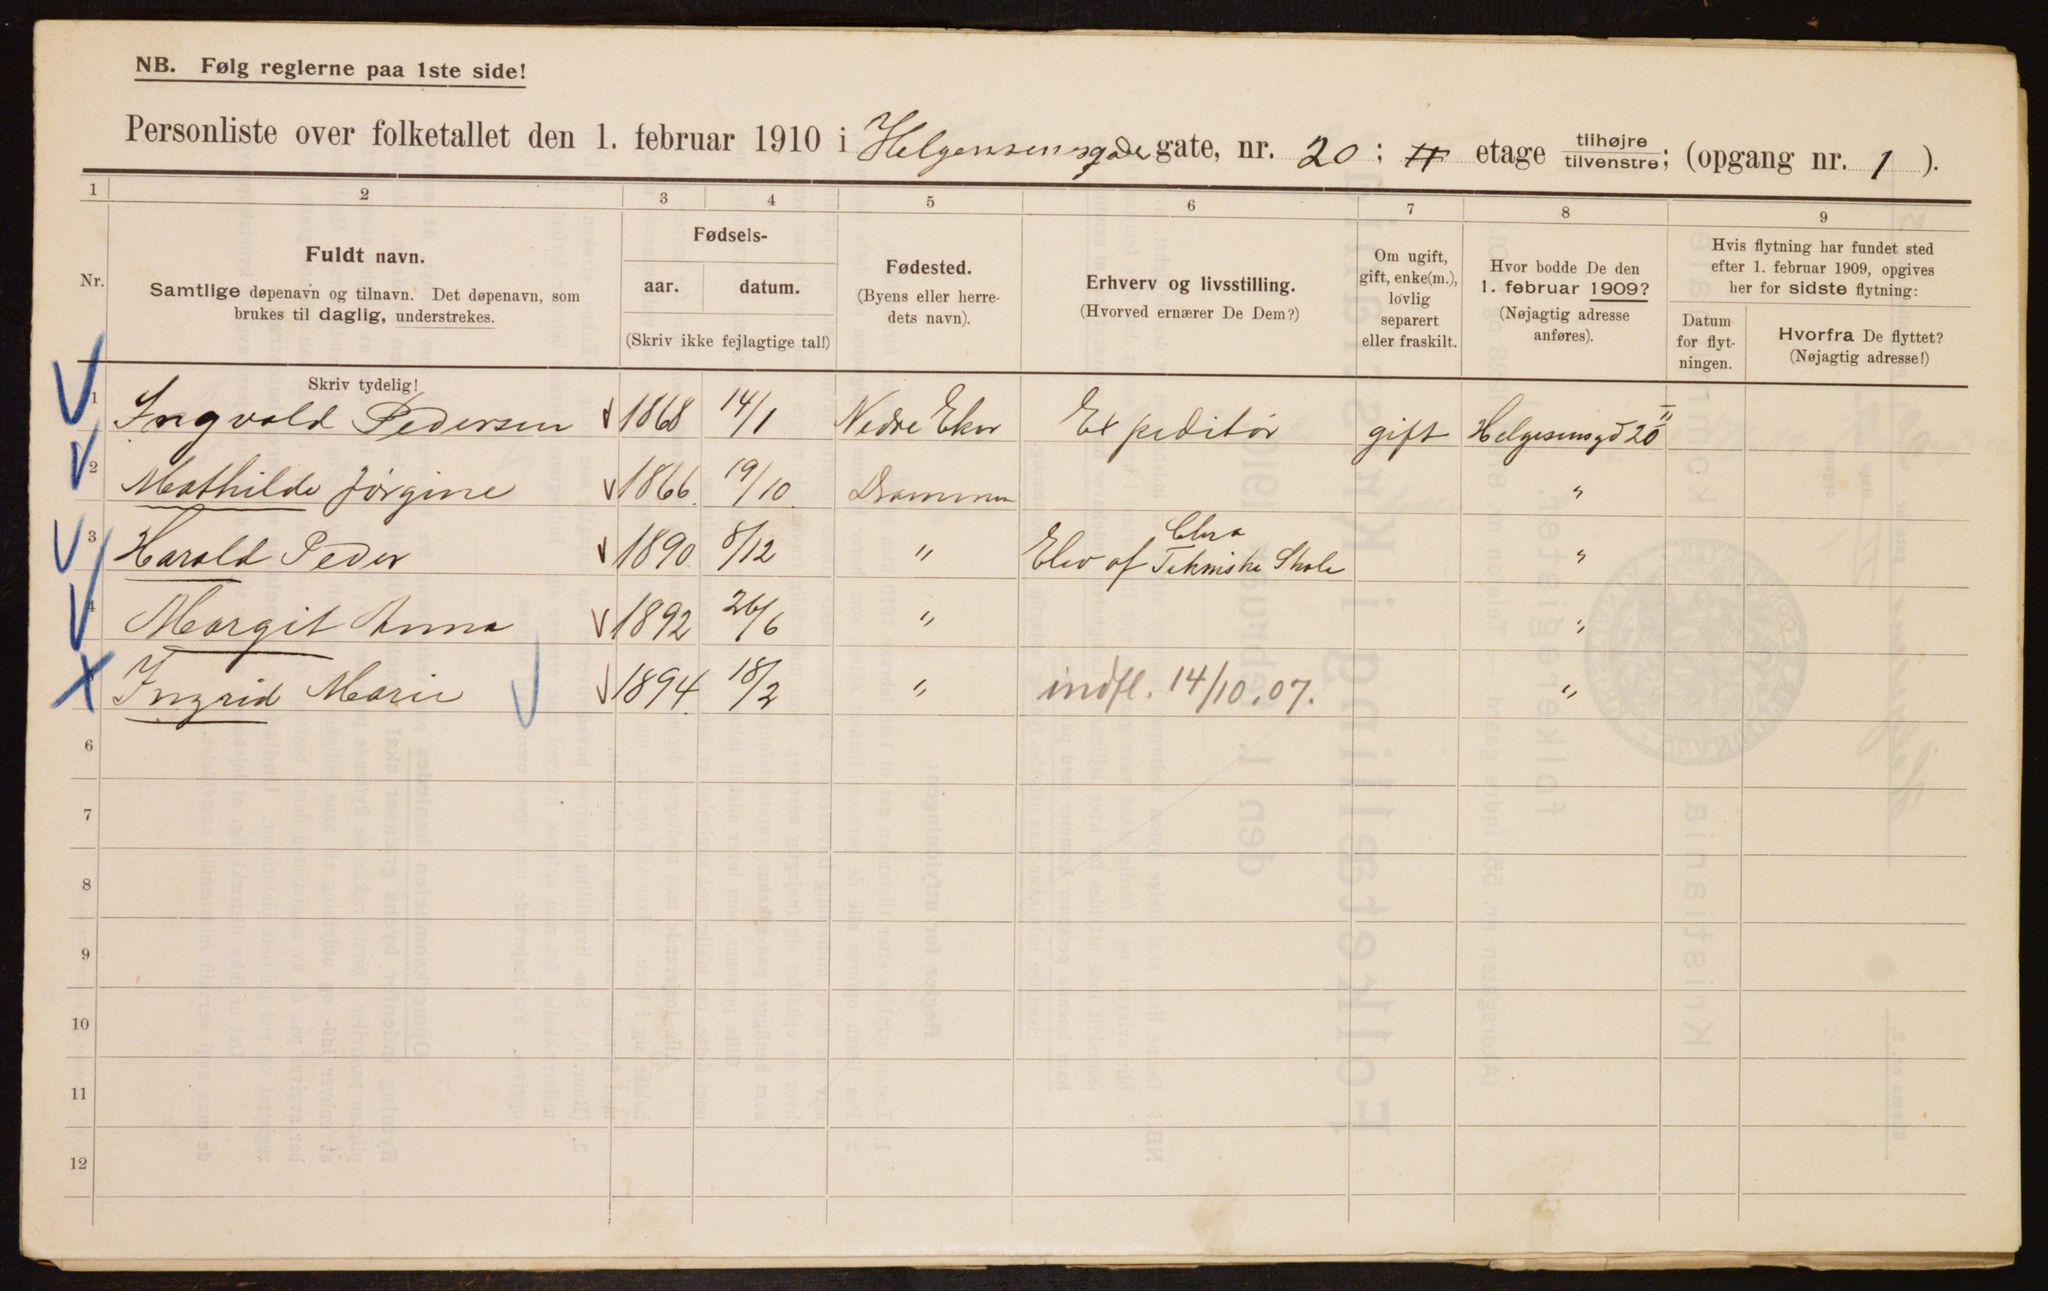 NB. Følg reglerne paa 1ste side!
Personliste over folketallet den 1. februar 1910 i Helgensensgade gate, nr. 20; II etage tilhøjre/tilvenstre; (opgang nr. 1).
1 2 3 4 5 6 7 8 9
Nr.
Fuldt navn.
Samtlige døpenavn og tilnavn. Det døpenavn, som
brukes til daglig, understrekes.
Skriv tydelig!
Fødsels-
aar. datum.
(Skriv ikke fejlagtige tal!)
Fødested.
(Byens eller herre-
dets navn).
Erhverv og livsstilling.
(Hvorved ernærer De Dem?)
Om ugift,
gift, enke(m.),
lovlig
separert
eller fraskilt.
Hvor bodde De den
1. februar 1909?
(Nøjagtig adresse
anføres).
Hvis flytning har fundet sted
efter 1. februar 1909, opgives
her for sidste flytning:
Datum
for flyt-
ningen.
Hvorfra De flyttet?
(Nøjagtig adresse!)
1 Ingvald Pedersen 1868 14/1 Nedre Eker Expeditør gift Helgesensgd 20 II
2 Mathilde Jørgine 1866 19/10 Drammen "
3 Harald Peder 1890 8/12 " Elev af Tekniske Skole "
4 Margit Anna 1892 26/6 " "
Ingrid Marie 1894 18/2 " indfl. 14/10.07. "
6
7
8
9
10
11
12